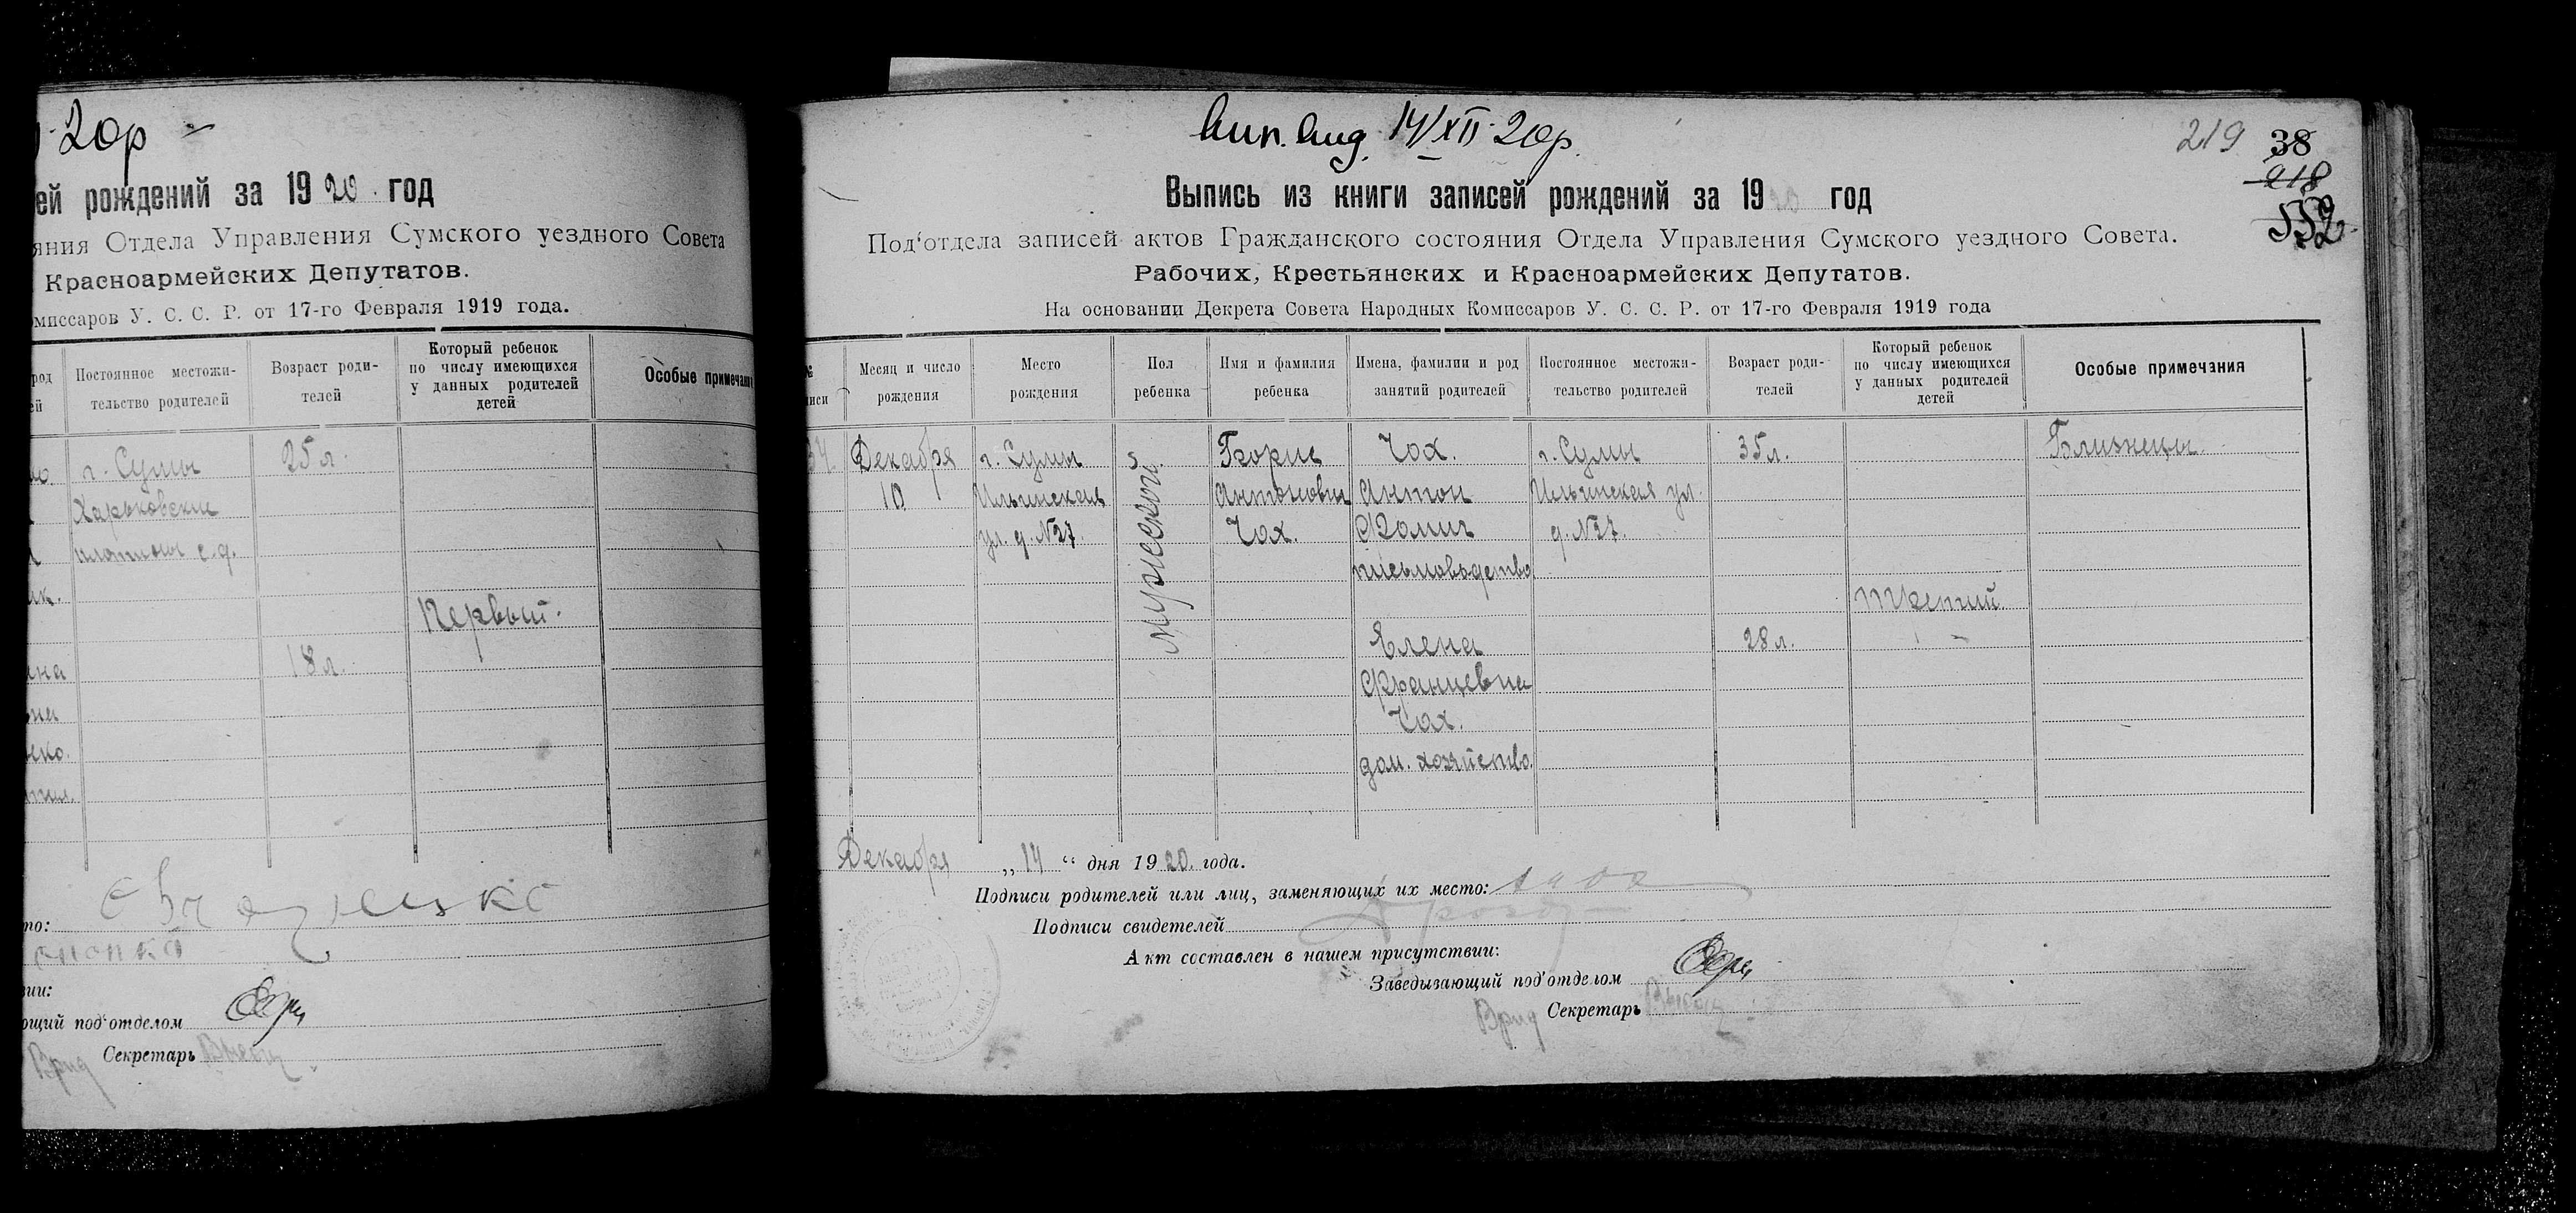 20р
ей рождений за 1920 год
яния Отдела Управления Сумского уездного Совета
Красноармейских Депутатов.
омиссаров У. С. С. Р. от 17-го Февраля 1919 года.
род
ей
Постоянное местожи-
тельство родителей
Возраст роди-
телей
Который ребенок
по числу имеющихся
у данных родителей
детей
Особые примечан
г. Сумы
25 л.
Харьковская
с.д.
Первый.
18 л.
на
на
ко.
то:
вии:
ющий под'отделом
Врид Секретарь
Вип. вид. 14/XII 20р.
219
38
218
552
Выпись из книги записей рождений за 1920 год
Под'отдела записей актов Гражданского состояния Отдела Управления Сумского уездного Совета.
Рабочих, Крестьянских и Красноармейских Депутатов.
На основании Декрета Совета Народных Комиссаров У. С. С. Р. от 17-го Февраля 1919 года
№
иси
Месяц и число
рождения
Место
рождения
Пол
ребенка
Имя и фамилия
ребенка
Имена, фамилии и род
занятий родителей
Постоянное местожи-
тельство родителей
Возраст роди-
телей
Который ребенок
по числу имеющихся
у данных родителей
детей
Особые примечания
34
Декабря
10
г. Сумы
Ильинская
ул. д. №27
Мужеской
Антонович
Чох.
Чох.
Антон
Фомич
письмоводство
Елена
Францевна
Чох.
дом. хозяйство.
г. Сумы
Ильинская ул.
д. №27.
35 л.
28 л.
Третий
Близнецы.
Декабря „14“ дня 1920 года.
Подписи родителей или лиц, заменяющих их место:
Подписи свидетелей
Акт составлен в нашем присутствии:
Заведывающий под'отделом
Врид Секретарь